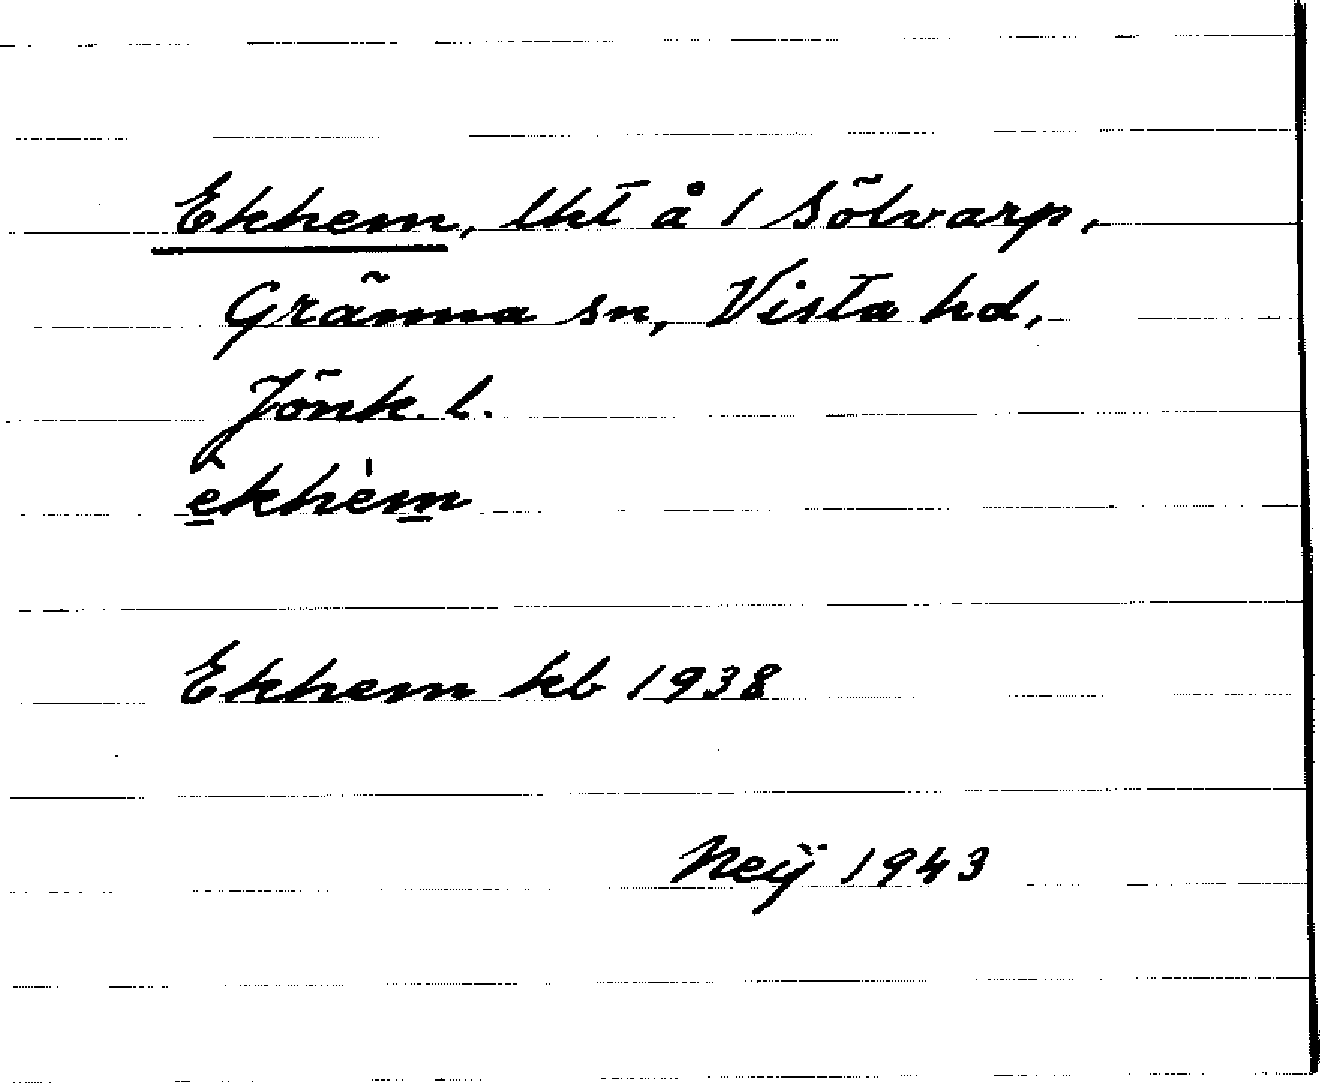 Ekhem, lht å 1 Sölvarp,
Gränna sn, Vista hd,
Jönk. l.
e̲khèm̲
Ekhem kb 1938
Neij 1943